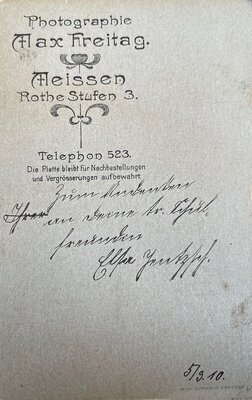 Photographie
Max Freitag.
Meissen
Rothe Stufen 3.
Telephon 523.
Die Platte bleibt für Nachbestellungen
und Vergrösserungen aufbewahrt.
Zum Andenken
an deine tr. Schul
freundin
Elsa Jentzsch.
5/3.10.